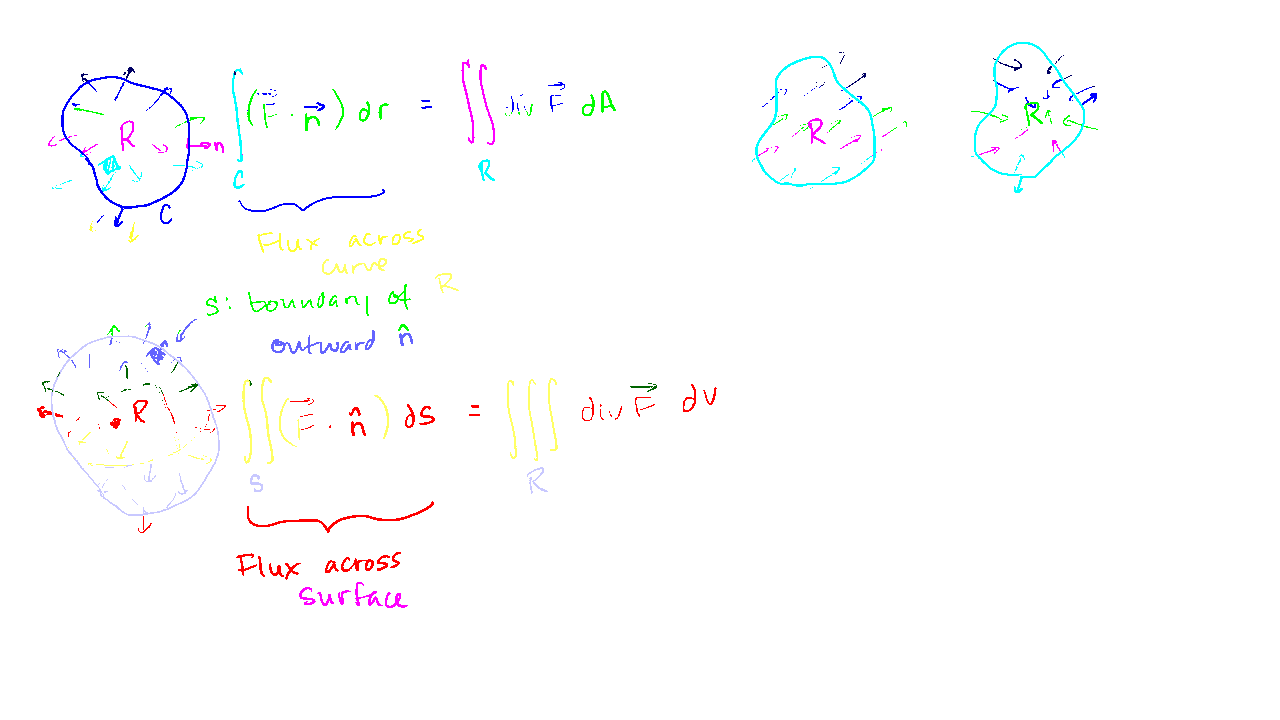 R
n
C
∫_C (F⃗ · n⃗) dr = ∬_R div F⃗ dA
Flux across
curve
R
R
R₁
S: boundary of R
outward n̂
R
∬_S (F⃗ · n̂) ds = ∭_R div F⃗ dv
Flux across
surface